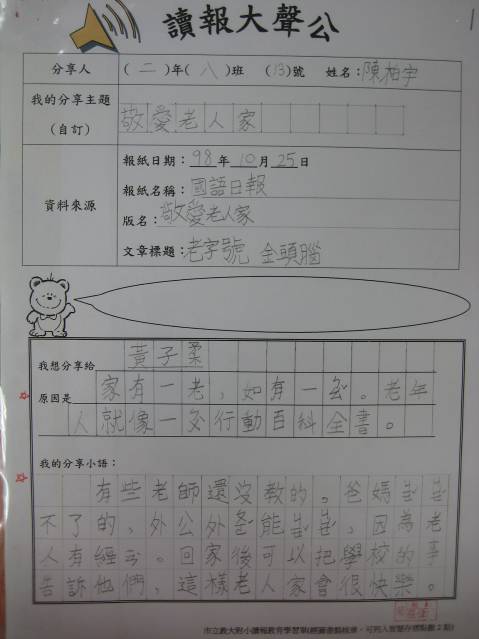 讀報大聲公
分享人 (二)年(八)班 (13)號 姓名：陳柏宇
我的分享主題
(自訂)
敬愛老人家
資料來源
報紙日期：98年10月25日
報紙名稱：國語日報
版名：敬愛老人家
文章標題：老字號 金頭腦
我想分享給 黃子柔
原因是 家有一老，如有一ㄅㄠˇ。老年
人就像一ㄅㄣˇ行動百科全書。
我的分享小語：
有些老師還沒教的。爸媽
不了的，外公外能，因為老
人有經。回家後可以把學校的事
告訴他們，這樣老人家會很快樂。